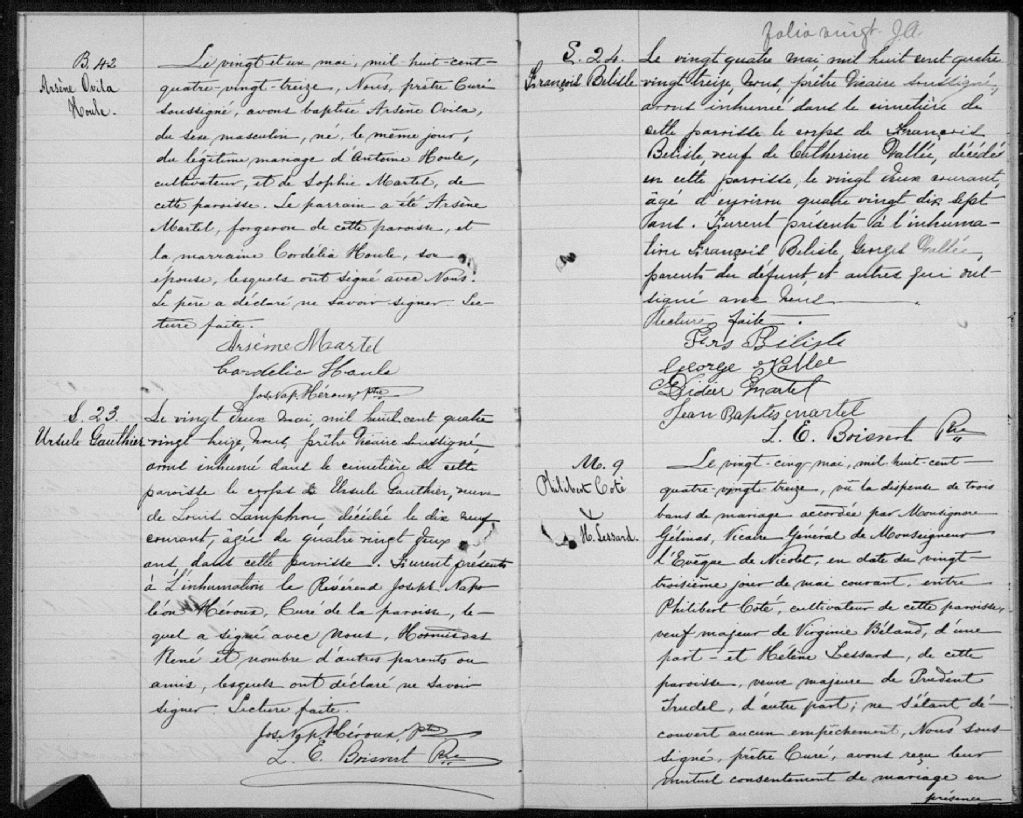 B. 42
Arsène Ovila
Houle.
Le vingt et un mai, mil-huit-cent-
quatre-vingt-treize, Nous, prêtre Curé
soussigné, avons baptisé Arsène Ovila,
du sexe masculin, né, le même jour,
du légitime mariage d'Antoine Houle,
cultivateur, et de Sophie Martel, de
cette paroisse. Le parrain a été Arsène
Martel, forgeron de cette paroisse, et
la marraine Cordélia Houle, son
épouse, lesquels ont signé avec Nous.
Le père a déclaré ne savoir signer. Lec-
ture faite.
Arséme Martel
Cordelia Houle
Jos. Nap. Héroux, Ptre
S. 23.
Ursule Gauthier
Le vingt deux mai mil huit cent quatre
vingt treize, nous prêtre Vicaire soussigné
avons inhumé dans le cimetière de cette
paroisse le corps de Ursule Gauthier, veuve
de Louis Lamphron, décédée le dix neuf
courant, âgée de quatre vingt deux
ans, dans cette paroisse. Furent présents
à L'inhumation le Révérend Joseph Napo
léon Héroux, Curé de la paroisse, le-
quel a signé avec nous, Hormisdas
René et nombre d'autres parents ou
amis, lesquels ont déclaré ne savoir
signer. Lecture faite.
Jos. Nap. Héroux, Ptre
L. E. Boisvert Ptre
folio vingt. J.A.
S. 24.
François Belisle
Le vingt quatre mai mil huit cent quatre
vingt treize, nous, prêtre Vicaire soussigné,
avons inhumé dans le cimetière de
cette paroisse le corps de François
Belisle, veuf de Catherine Vallée, décédé
en cette paroisse, le vingt deux courant,
âgé d'environ quatre vingt dix sept
ans. Furent présents à l'inhuma-
tion François Belisle, Georges Vallée,
parents du défunt, et autres qui ont
signé avec nous
Lecture faite.
Frs Bélisle
George Vallee
Didier Martel
Jean Baptes martel
L. E. Boisvert Ptre
M. 9
Philibert Coté
&
H. Lessard.
Le vingt-cinq mai, mil-huit-cent-
quatre-vingt-treize, vu la dispense de trois
bans de mariage accordée par Monsignore
Gélinas, Vicaire Général de Monseigneur
l'Evêque de Nicolet, en date du vingt-
troisième jour de mai courant, entre
Philibert Coté, cultivateur de cette paroisse,
veuf majeur de Virginie Béland, d'une
part - et Hélène Lessard, de cette
paroisse, veuve majeure de Prudent
Trudel, d'autre part; ne s'étant dé-
couvert aucun empêchement, Nous sous-
signé, prêtre Curé, avons reçu leur
mutuel consentement de mariage en
présence